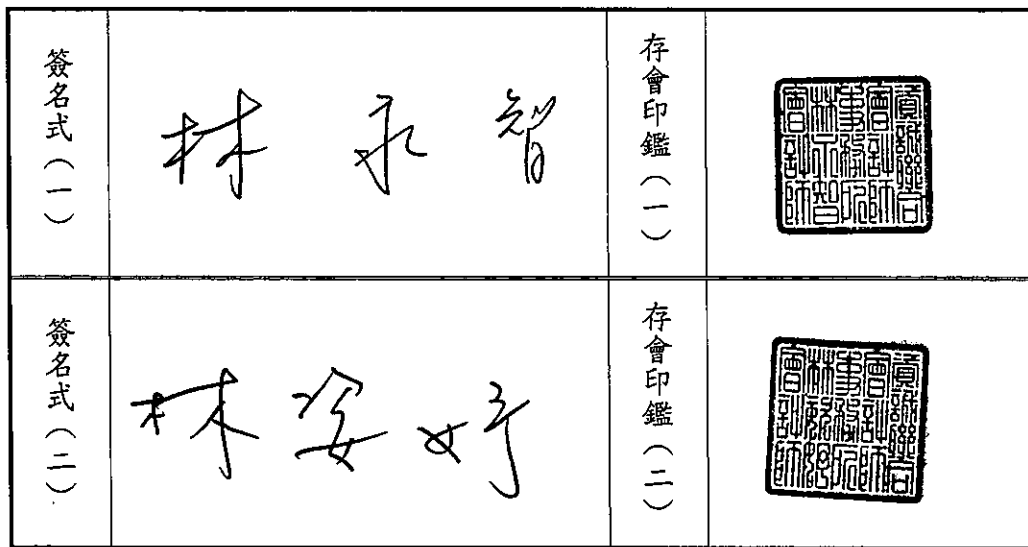 簽名式（一）
林永智
存會印鑑（一）
會計師
事務所
林永智
會計師
簽名式（二）
林姿妤
存會印鑑（二）
會計師
事務所
會計師